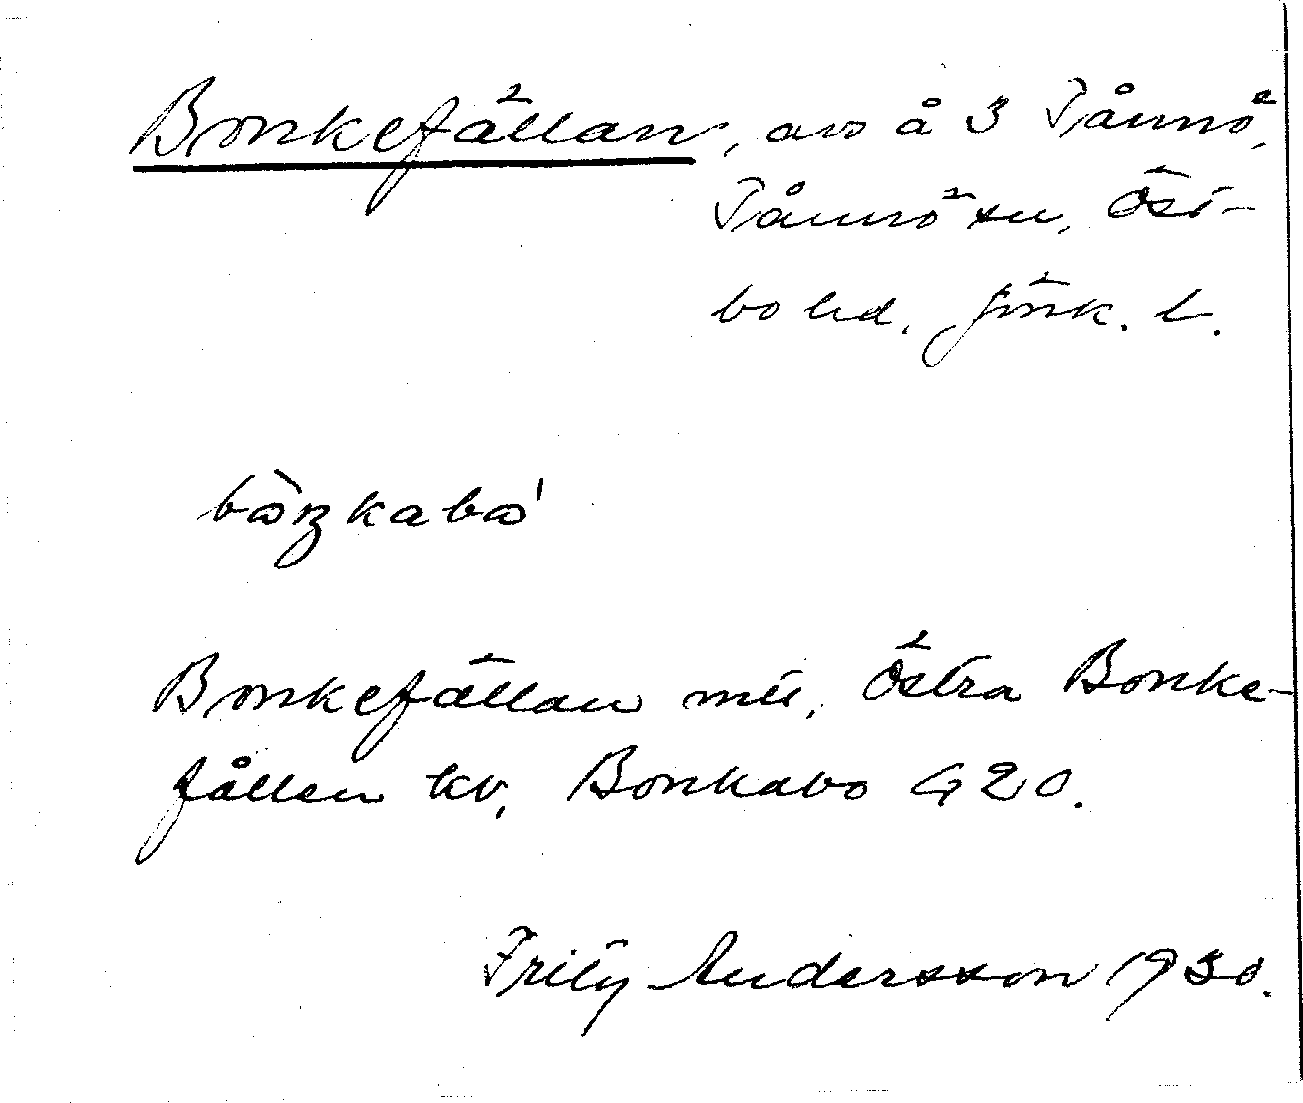 Bonkefällan, avs å 3 Tånnö,
Tånnö sn, Öst-
bo hd, Jönk. l.
bȯ̀ŋkabȯ'
Bonkefällan mtl., Östra Bonke-
fållen kv, Bonkabo G20.
Frity Andersson 1930.